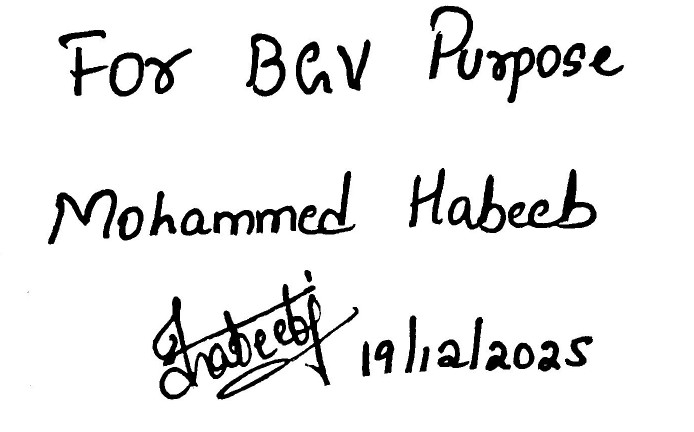 For BGV Purpose
Mohammed Habeeb
Habeeb 19/12/2025